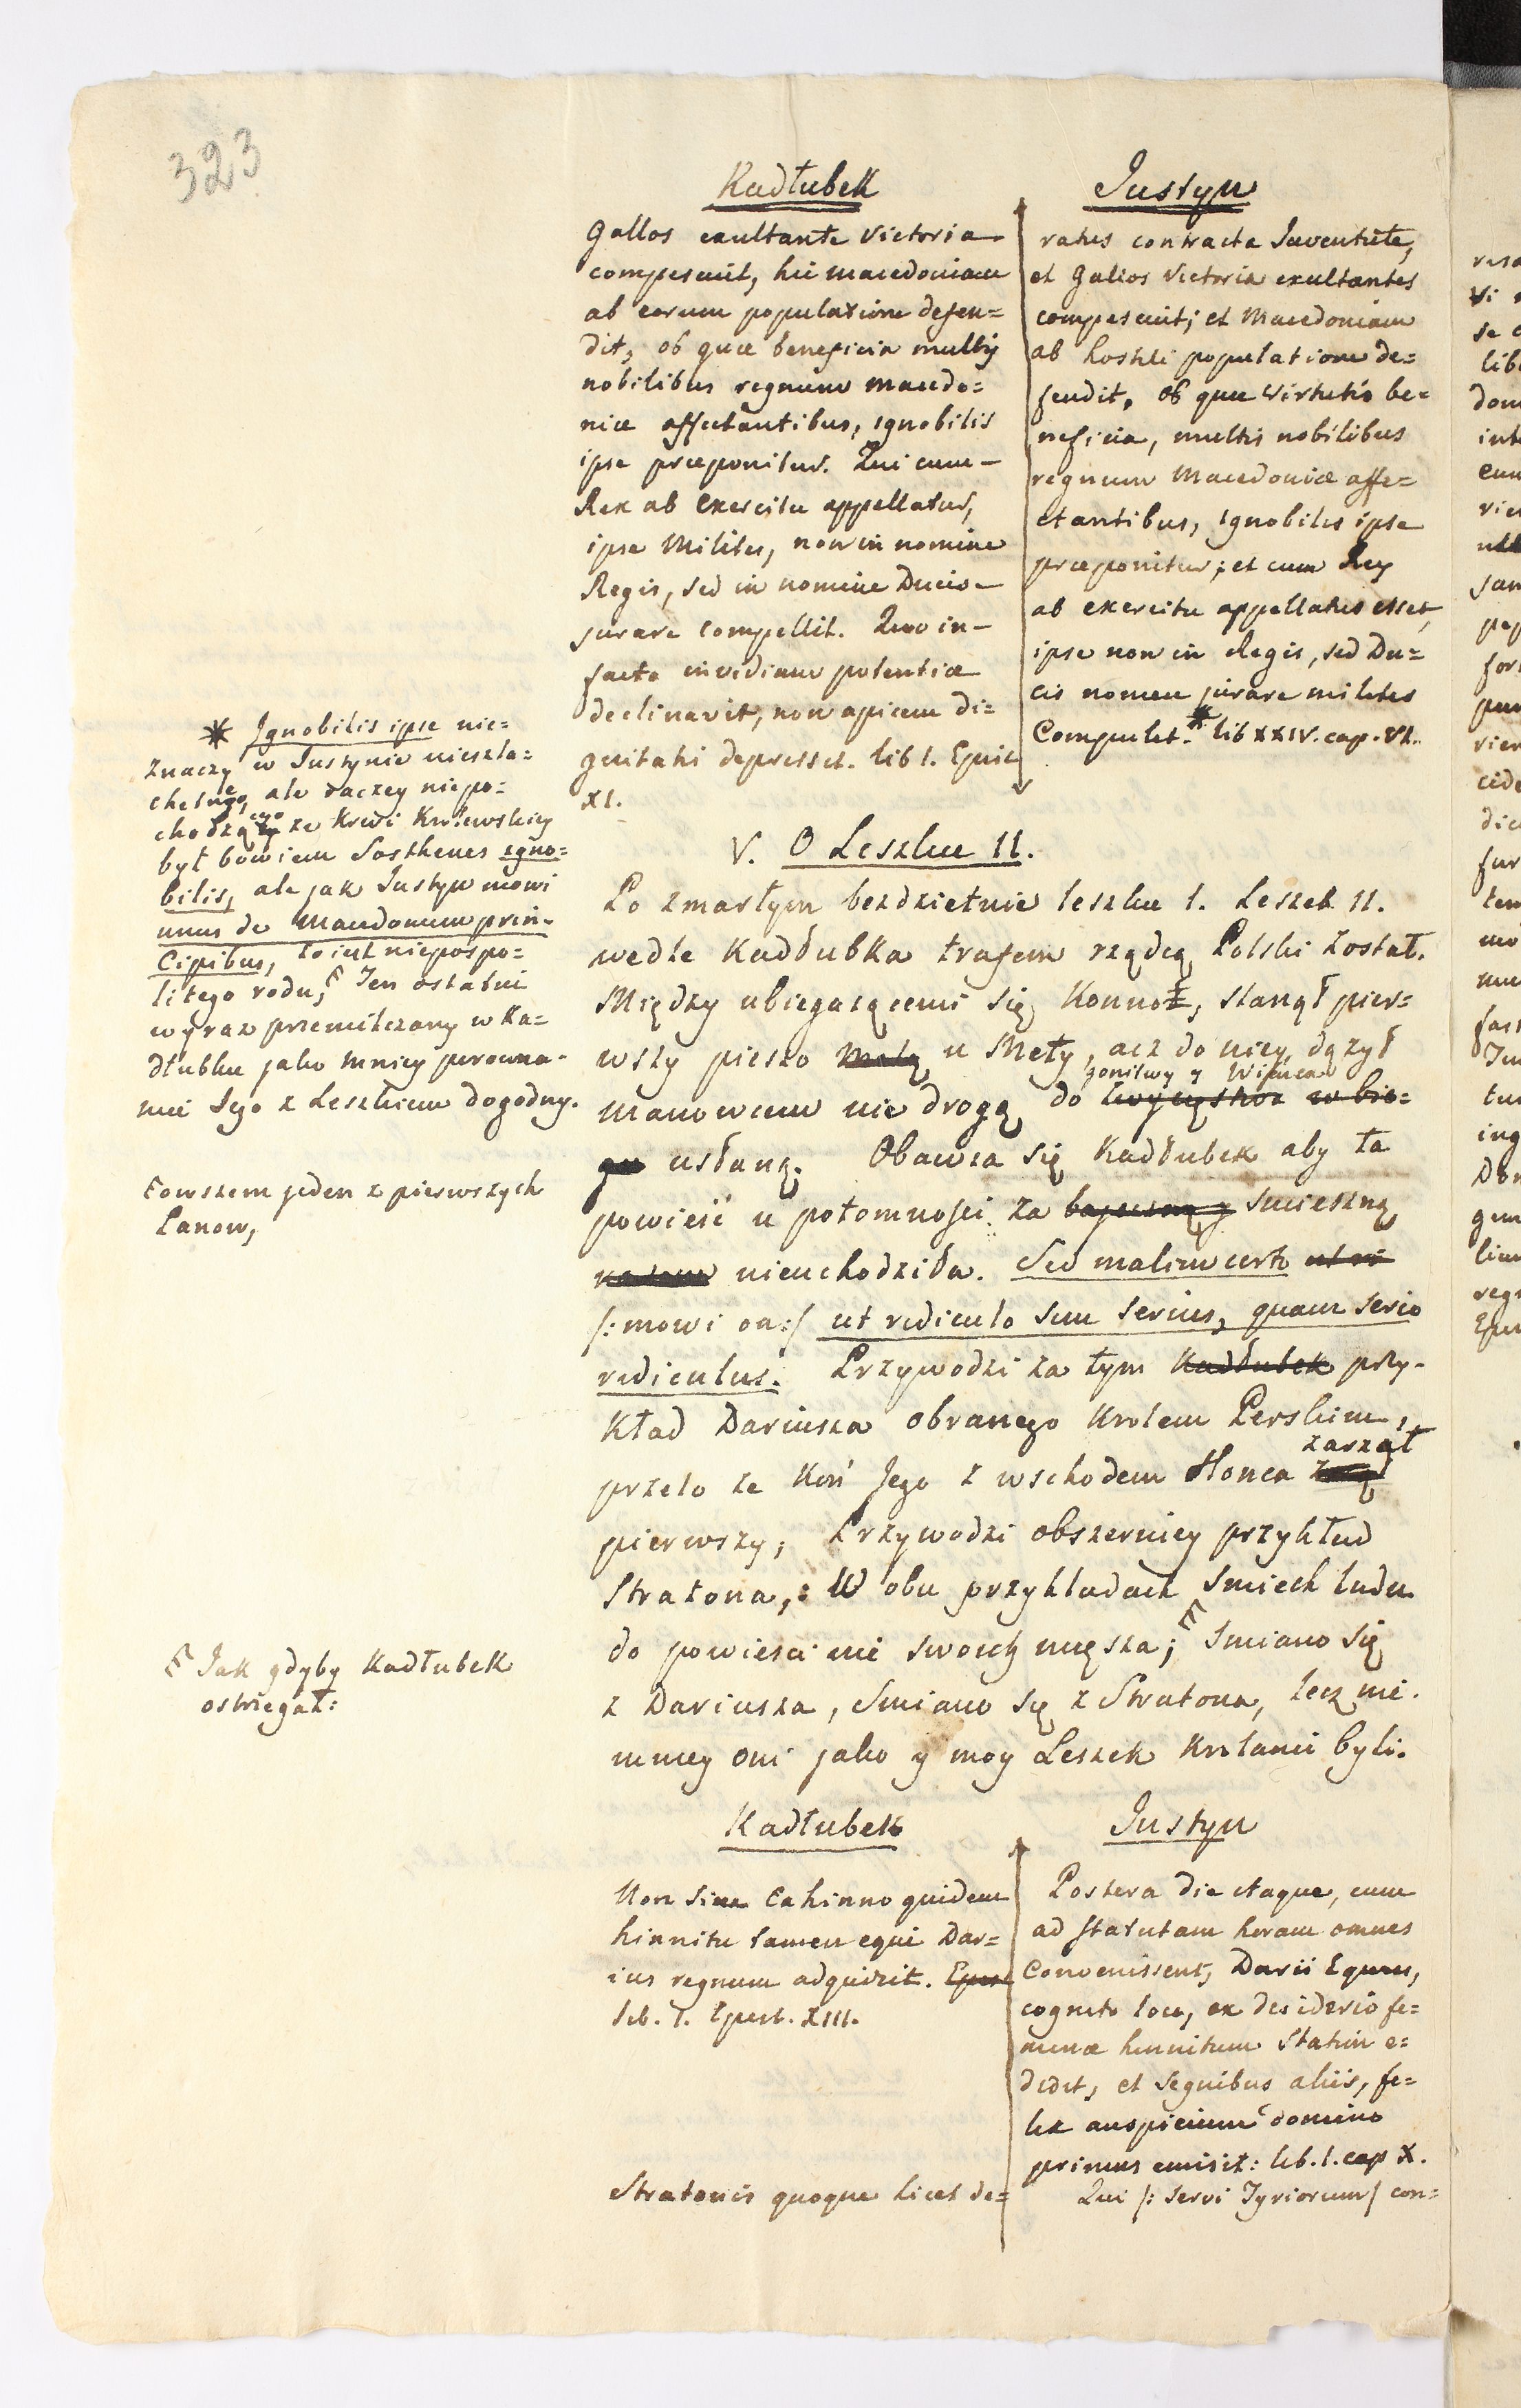 323
Kadłubek
Gallos exultante victoria
compescuit, hic Macedoniam
ab eorum populatione defen=
dit, ob quæ beneficia multis
nobilibus regnum Macedo=
niæ affectantibus, ignobilis
ipse præponitur. Qui cum
Rex ab Exercitu appellatus,
ipse Milites, non in nomine
Regis, sed in nomine Ducis
jurare compellit. Quo in
facto invidiam potentiæ
declinavit, non apicem di=
gnitatis depresset. lib 1. Epist
XI.
Justyn
ratus contracta Juventute,
et Gallos Victoria exultantes
compescuit; et Macedoniam
ab hostili populatione de=
fendit, ob quæ virtutis be=
neficia, multis nobilibus
regnum Macedoniæ affe=
ctantibus, ignobilis ipse
præponitur; et cum Rex
ab exercitu appellatus esset,
ipse non in Regis, sed Du=
cis nomen jurare milites
Compulit.* lib XXIV. cap. VI.
* Ignobilis ipse nie=
znaczy w Justynie nieszla=
chetnego, ale raczey niepo=
chodzącego ze krwi Krolewskiey
był bowiem Sosthenes igno=
bilis, ale jak Justyn mowi
unus de Macedonum prin=
cipibus, to iest niepospo=
litego rodu, Ten ostatni
wyraz przemilczany w Ka=
dłubku jako mniey porowna-
niu Jego z Leszkiem dogodny.
owszem jeden z pierwszych
Panow,
V. O Leszku II.
Po zmarłym bezdzietnie Leszku 1. Leszek II.
wedle Kadłubka trafem rządcą Polski został.
Między ubiegaiącemi się Konno, stanął pier=
wszy pieszo metą u Mety, acz do niey dążył
gonitwy y Wieńca
manowcem nie drogą do zwycięstwa w bie=
gu usłaną. Obawia się Kadłubek aby ta
powieść u potomności za bajeczną y smieszną
nieuchodziła. Sed malim certo ut ri
/: mowi on :/ ut ridiculo sim serius, quam serio
ridiculus. Przywodzi za tym Kadłubek przy-
kład Dariusza obranego Krolem Perskim,
zarżał
przeto ze Koń Jego z wschodem słonca
pierwszy; Przywodzi obszerniey przykład
Stratona,: W obu przykładach Smiech ludu
do powieści nie swoiey miesza; Smiano się
z Dariusza, Smiano się z Stratona, lecz nie
mniey oni jako y moy Leszek Krolami byli.
Jak gdyby Kadłubek
ostrzegał:
Kadłubek
Non sine Cahinno quidem
hinnitu tamen equi Dar=
ius regnum adquirit. Epist
lib. I. Epist. XIII.
Stratonis quoque licet de=
Justyn
Postera die itaque, cum
ad statutam horam omnes
Convenissent, Darii Equus,
cognito loco, ex desiderio fe=
minæ hinnitum statim e=
didit, et segnibus aliis, fe=
lix auspicium domino
primus emisit: lib. 1. cap X.
Qui /: servi Tyriorum / con=